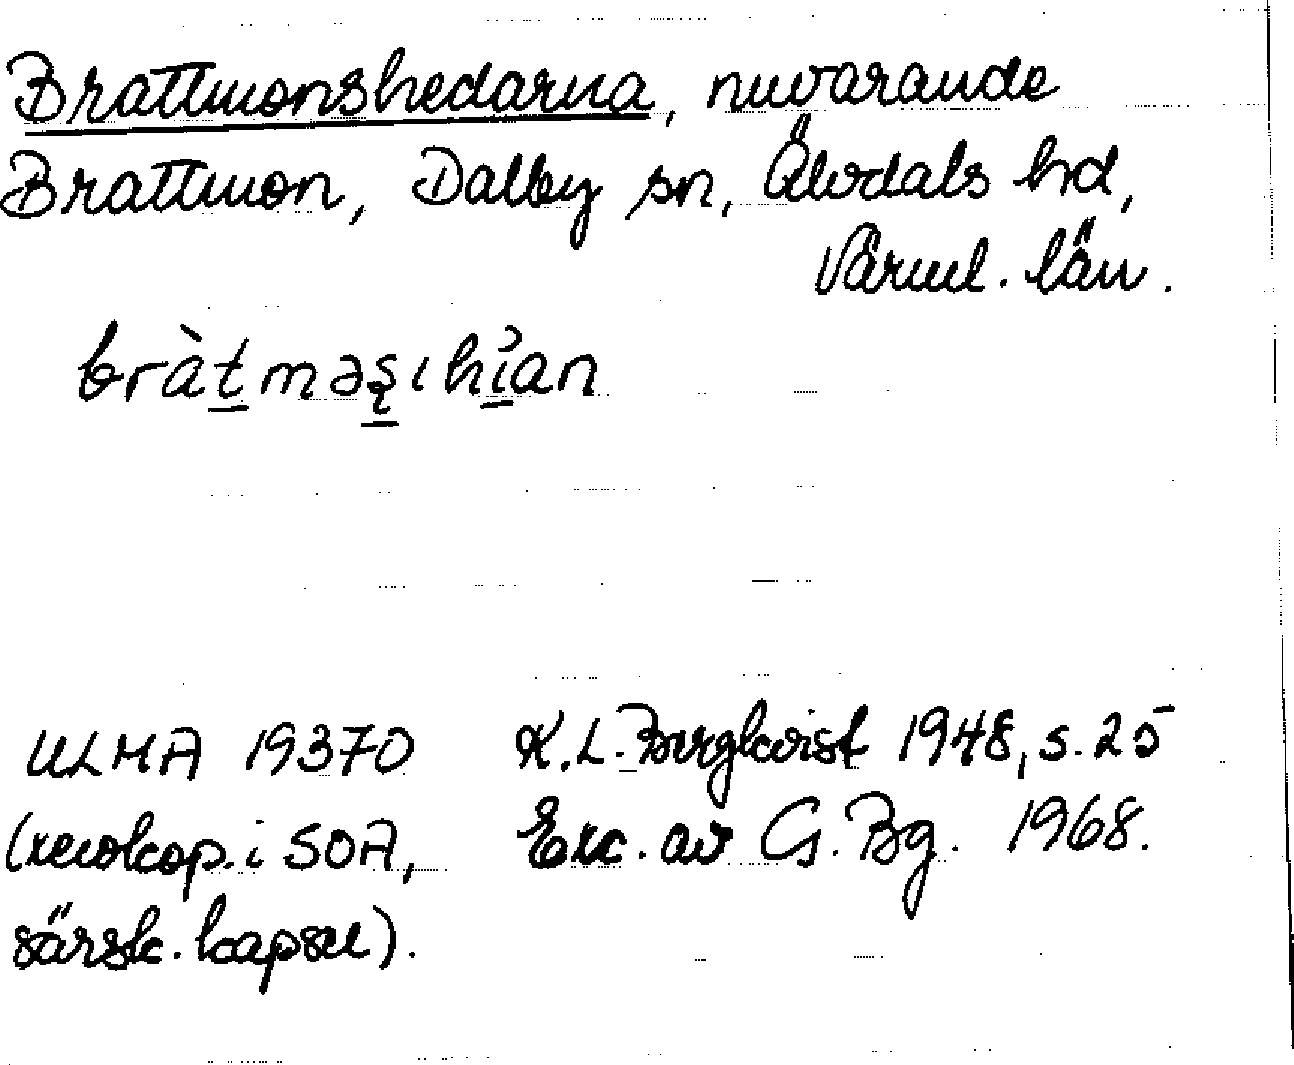 Brattmonshedarna, nuvarande
Brattmon, Dalby sn, Älvdals hd,
Värml. län.
bràt̲məʂ̲ıhỉ̲an
ULMA 19370 K.L. Bergkvist 1948, s. 25
(xerokop. i SOA, Exc. av G. Bg. 1968.
särsk. kapsel).